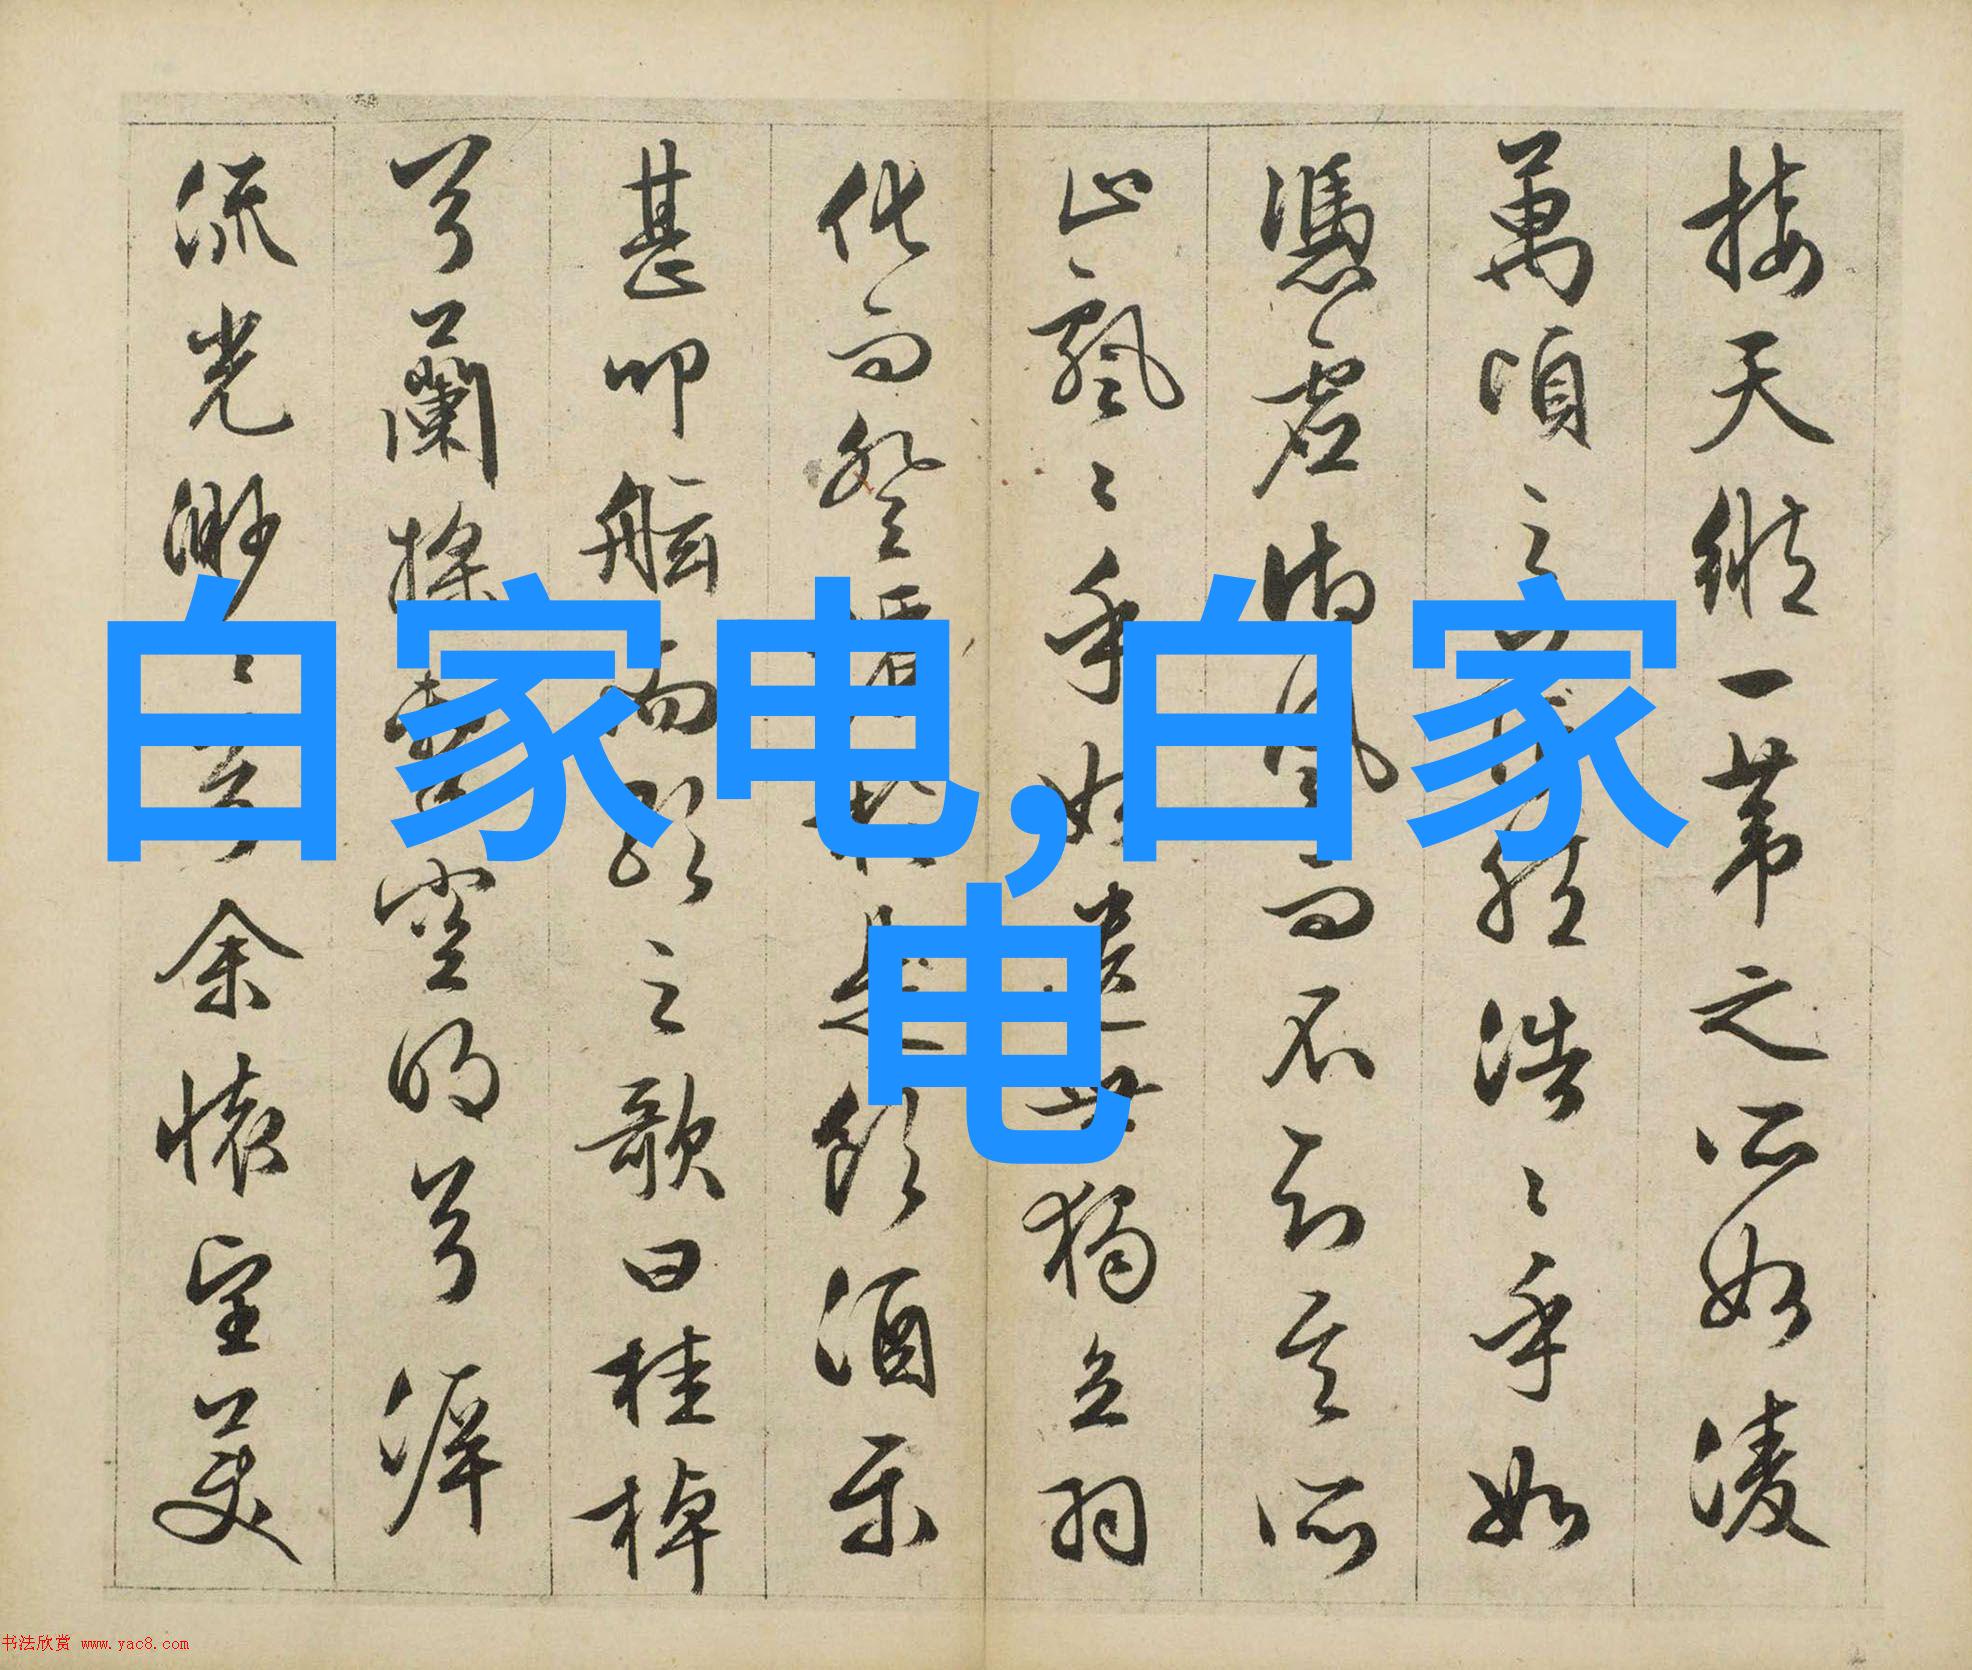 接天縱一葦之所如凌
萬頃之茫然浩〻乎如
憑虛御風而不知其所
止飄〻乎如遺世獨立羽
化而登僊於是飲酒樂
甚叩舷而歌之歌曰桂棹
兮蘭槳擊空明兮泝
流光渺〻兮余懷望美
白家电,白家
电
书法欣赏 www.yac8.com